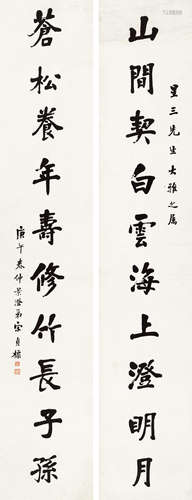 星三先生大雅之属
山間契白雲海上澄明月
蒼松養年壽修竹長子孫
庚午春仲景澄弟宗貞模